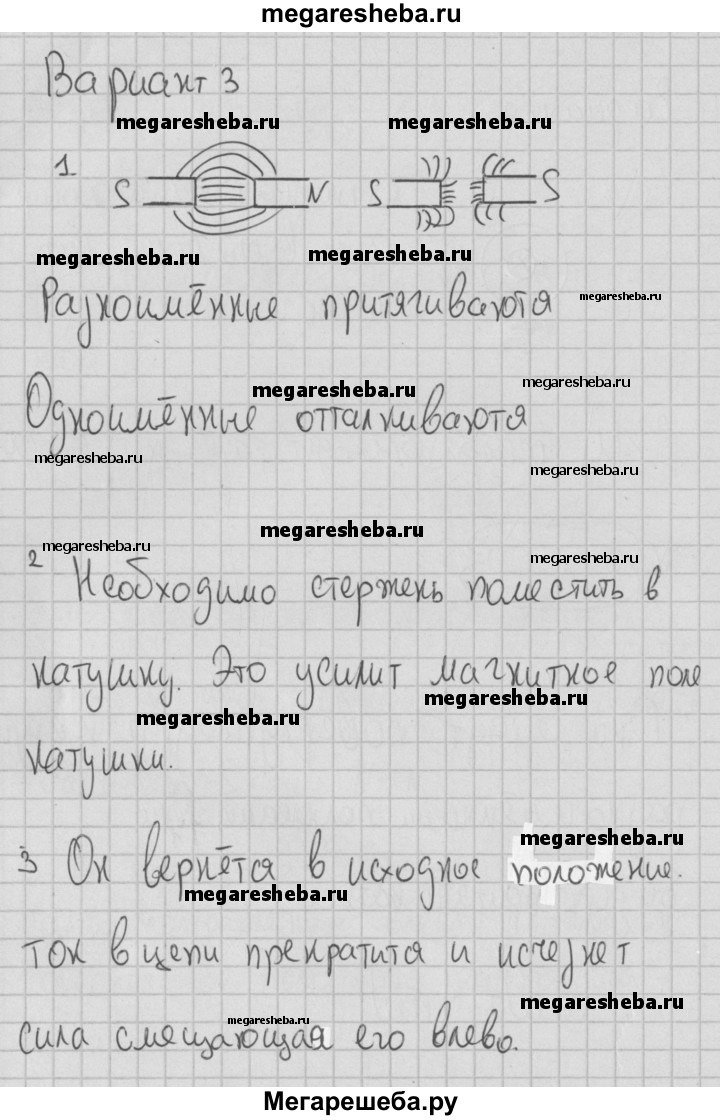 megaresheba.ru
Вариант 3
megaresheba.ru megaresheba.ru
1 S N S S
megaresheba.ru megaresheba.ru
Разноимённые притягиваются megaresheba.ru
megaresheba.ru megaresheba.ru
Одноимённые отталкиваются
megaresheba.ru megaresheba.ru
megaresheba.ru
megaresheba.ru megaresheba.ru
2 Необходимо стержень поместить в
катушку. Это усилит магнитное поле
megaresheba.ru megaresheba.ru
катушки.
megaresheba.ru
3 Он вернётся в исходное положение.
megaresheba.ru
ток в цепи прекратится и исчезнет
megaresheba.ru
megaresheba.ru
сила смещающая его влево.
Мегарешеба.ру